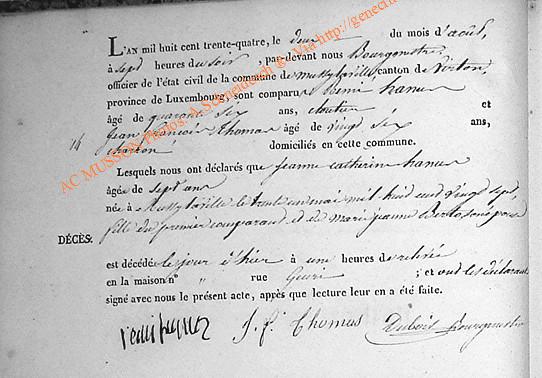 L'AN mil huit cent trente-quatre, le deux du mois d'août,
à sept heures du soir, par-devant nous Bourgmestre,
officier de l'état civil de la commune de mussy la ville, canton de Virton,
province de Luxembourg, sont comparu henri hanus
âgé de quarante six ans, cloutier et
jean françois thomas âgé de vingt six ans,
charron domiciliés en cette commune.
Lesquels nous ont déclarés que jeanne catherine hanus
âgée de sept ans
née à Mussy laville le trente un mai mil huit cent vingt sept,
fille du premier comparant et de marie jeanne
est décédée le jour d'hier à une heures de
en la maison n° " rue ; et ont les déclarants
signé avec nous le présent acte, après que lecture leur en a été faite.
J. f. Thomas Dubois Bourgmestre
DÉCÈS:
16
AC MUSSON Photos: A. Schneidesch © Via http://genechi